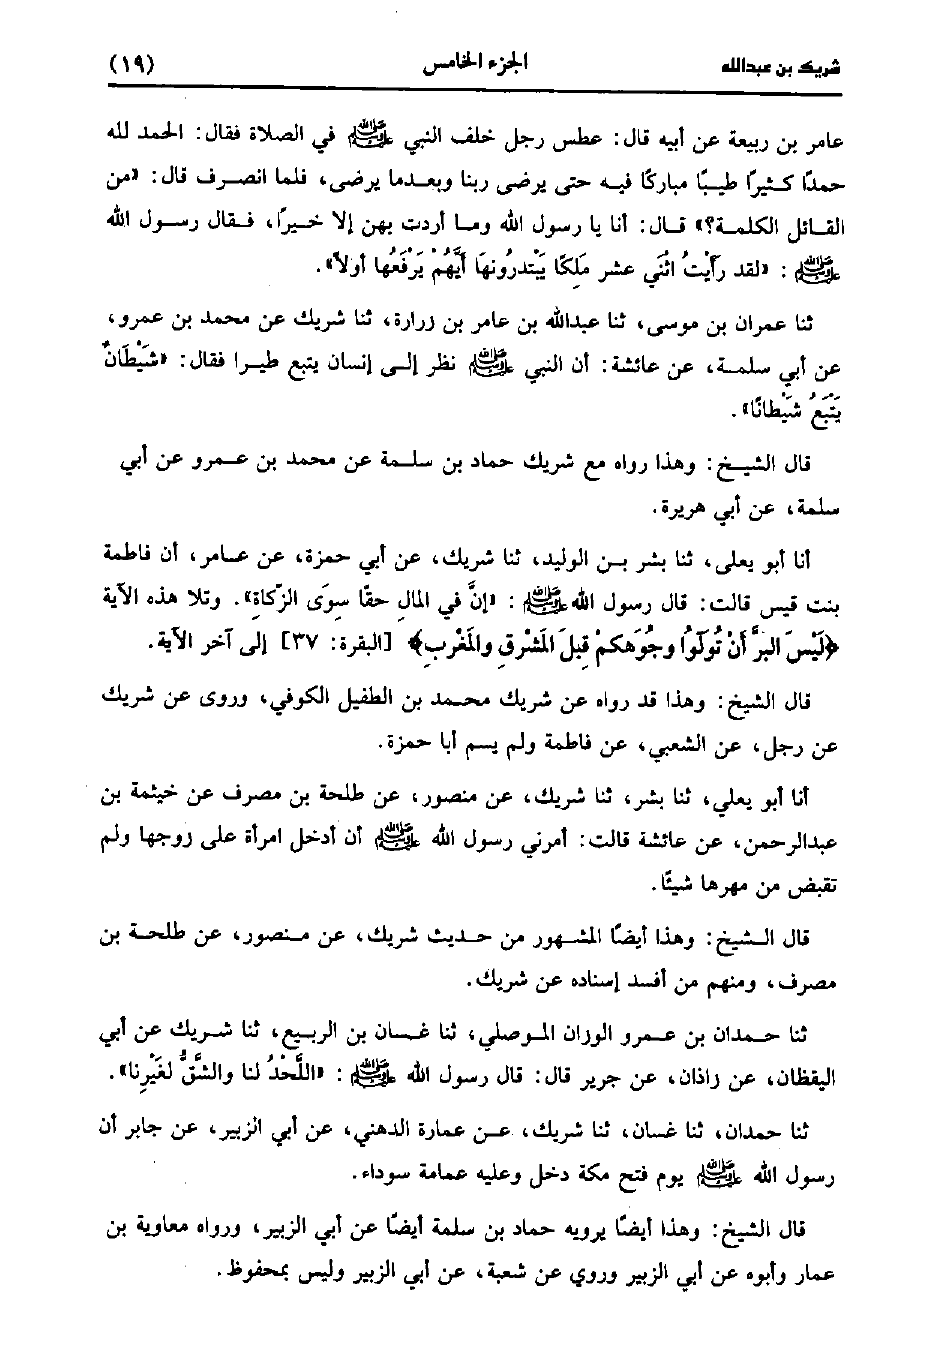 شريك بن عبدالله الجزء الخامس (١٩)
عامر بن ربيعة عن أبيه قال: عطس رجل خلف النبي ﷺ في الصلاة فقال: الحمد لله
حمدًا كثيرًا طيبًا مباركًا فيه حتى يرضى ربنا وبعدما يرضى، فلما انصرف قال: «من
القائل الكلمة؟» قال: أنا يا رسول الله وما أردت بهن إلا خيرًا، فقال رسول الله
ﷺ : «لقد رَأَيْتُ اثْنَي عشر مَلَكًا يَبْتَدرُونَهَا أَيُّهُمْ يَرْفَعُها أولاً».
ثنا عمران بن موسى، ثنا عبدالله بن عامر بن زرارة، ثنا شريك عن محمد بن عمرو،
عن أبي سلمة، عن عائشة: أن النبي ﷺ نظر إلى إنسان يتبع طيرا فقال: «شَيْطَانٌ
يَتْبَعُ شَيْطانًا».
قال الشيخ: وهذا رواه مع شريك حماد بن سلمة عن محمد بن عمرو عن أبي
سلمة، عن أبي هريرة.
أنا أبو يعلى، ثنا بشر بن الوليد، ثنا شريك، عن أبي حمزة، عن عامر، أن فاطمة
بنت قيس قالت: قال رسول الله ﷺ : «إنَّ في المالِ حقًا سوَى الزّكاةِ». وتلا هذه الآية
﴿لَيْسَ البرَّ أنْ تُولّوا وجُوَهكمْ قبلَ المَشْرقِ والمَغْربِ﴾ [البقرة: ٣٧] إلى آخر الآية.
قال الشيخ: وهذا قد رواه عن شريك محمد بن الطفيل الكوفي، وروى عن شريك
عن رجل، عن الشعبي، عن فاطمة ولم يسم أبا حمزة.
أنا أبو يعلي، ثنا بشر، ثنا شريك، عن منصور، عن طلحة بن مصرف عن خيثمة بن
عبدالرحمن، عن عائشة قالت: أمرني رسول الله ﷺ أن أدخل امرأة على زوجها ولم
تقبض من مهرها شيئًا.
قال الشيخ: وهذا أيضًا المشهور من حديث شريك، عن منصور، عن طلحة بن
مصرف، ومنهم من أفسد إسناده عن شريك.
ثنا حمدان بن عمرو الوزان الموصلي، ثنا غسان بن الربيع، ثنا شريك عن أبي
اليقظان، عن زاذان، عن جرير قال: قال رسول الله ﷺ : «اللَّحْدُ لنا والشَّقُّ لغَيْرِنا».
ثنا حمدان، ثنا غسان، ثنا شريك، عن عمارة الدهني، عن أبي الزبير، عن جابر أن
رسول الله ﷺ يوم فتح مكة دخل وعليه عمامة سوداء.
قال الشيخ: وهذا أيضًا يرويه حماد بن سلمة أيضًا عن أبي الزبير، ورواه معاوية بن
عمار وأبوه عن أبي الزبير وروي عن شعبة، عن أبي الزبير وليس بمحفوظ.